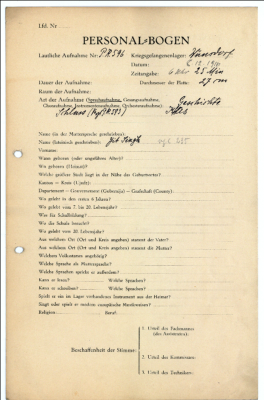 Lfd. Nr.
PERSONAL-BOGEN
Lautliche Aufnahme Nr.: P.K. 576 Kriegsgefangenenlager: Wünsdorf
Datum:
Zeitangabe: 4 Uhr 25 Min
Dauer der Aufnahme: Durchmesser der Platte: 27 cm
Raum der Aufnahme:
Art der Aufnahme (Sprechaufnahme, Gesangsaufnahme, Geschichte
Choraufnahme, Instrumentenaufnahme, Orchesteraufnahme):
Name (in der Muttersprache geschrieben):
Name (lateinisch geschrieben): Singh
Vorname:
Wann geboren (oder ungefähres Alter)?
Wo geboren (Heimat)?
Welche größere Stadt liegt in der Nähe des Geburtsortes?
Kanton — Kreis (Ujedz):
Departement — Gouvernement (Gubernija) — Grafschaft (County):
Wo gelebt in den ersten 6 Jahren?
Wo gelebt vom 7. bis 20. Lebensjahr?
Was für Schulbildung?
Wo die Schule besucht?
Wo gelebt vom 20. Lebensjahr?
Aus welchem Ort (Ort und Kreis angeben) stammt der Vater?
Aus welchem Ort (Ort und Kreis angeben) stammt die Mutter?
Welchem Volksstamm angehörig?
Welche Sprache als Muttersprache?
Welche Sprachen spricht er außerdem?
Kann er lesen? Welche Sprachen?
Kann er schreiben? Welche Sprachen?
Spielt er ein im Lager vorhandenes Instrument aus der Heimat?
Singt oder spielt er modern europäische Musikweisen?
Religion: Beruf:
1. Urteil des Fachmannes
(des Assistenten):
Beschaffenheit der Stimme:
2. Urteil des Kommissars:
3. Urteil des Technikers: